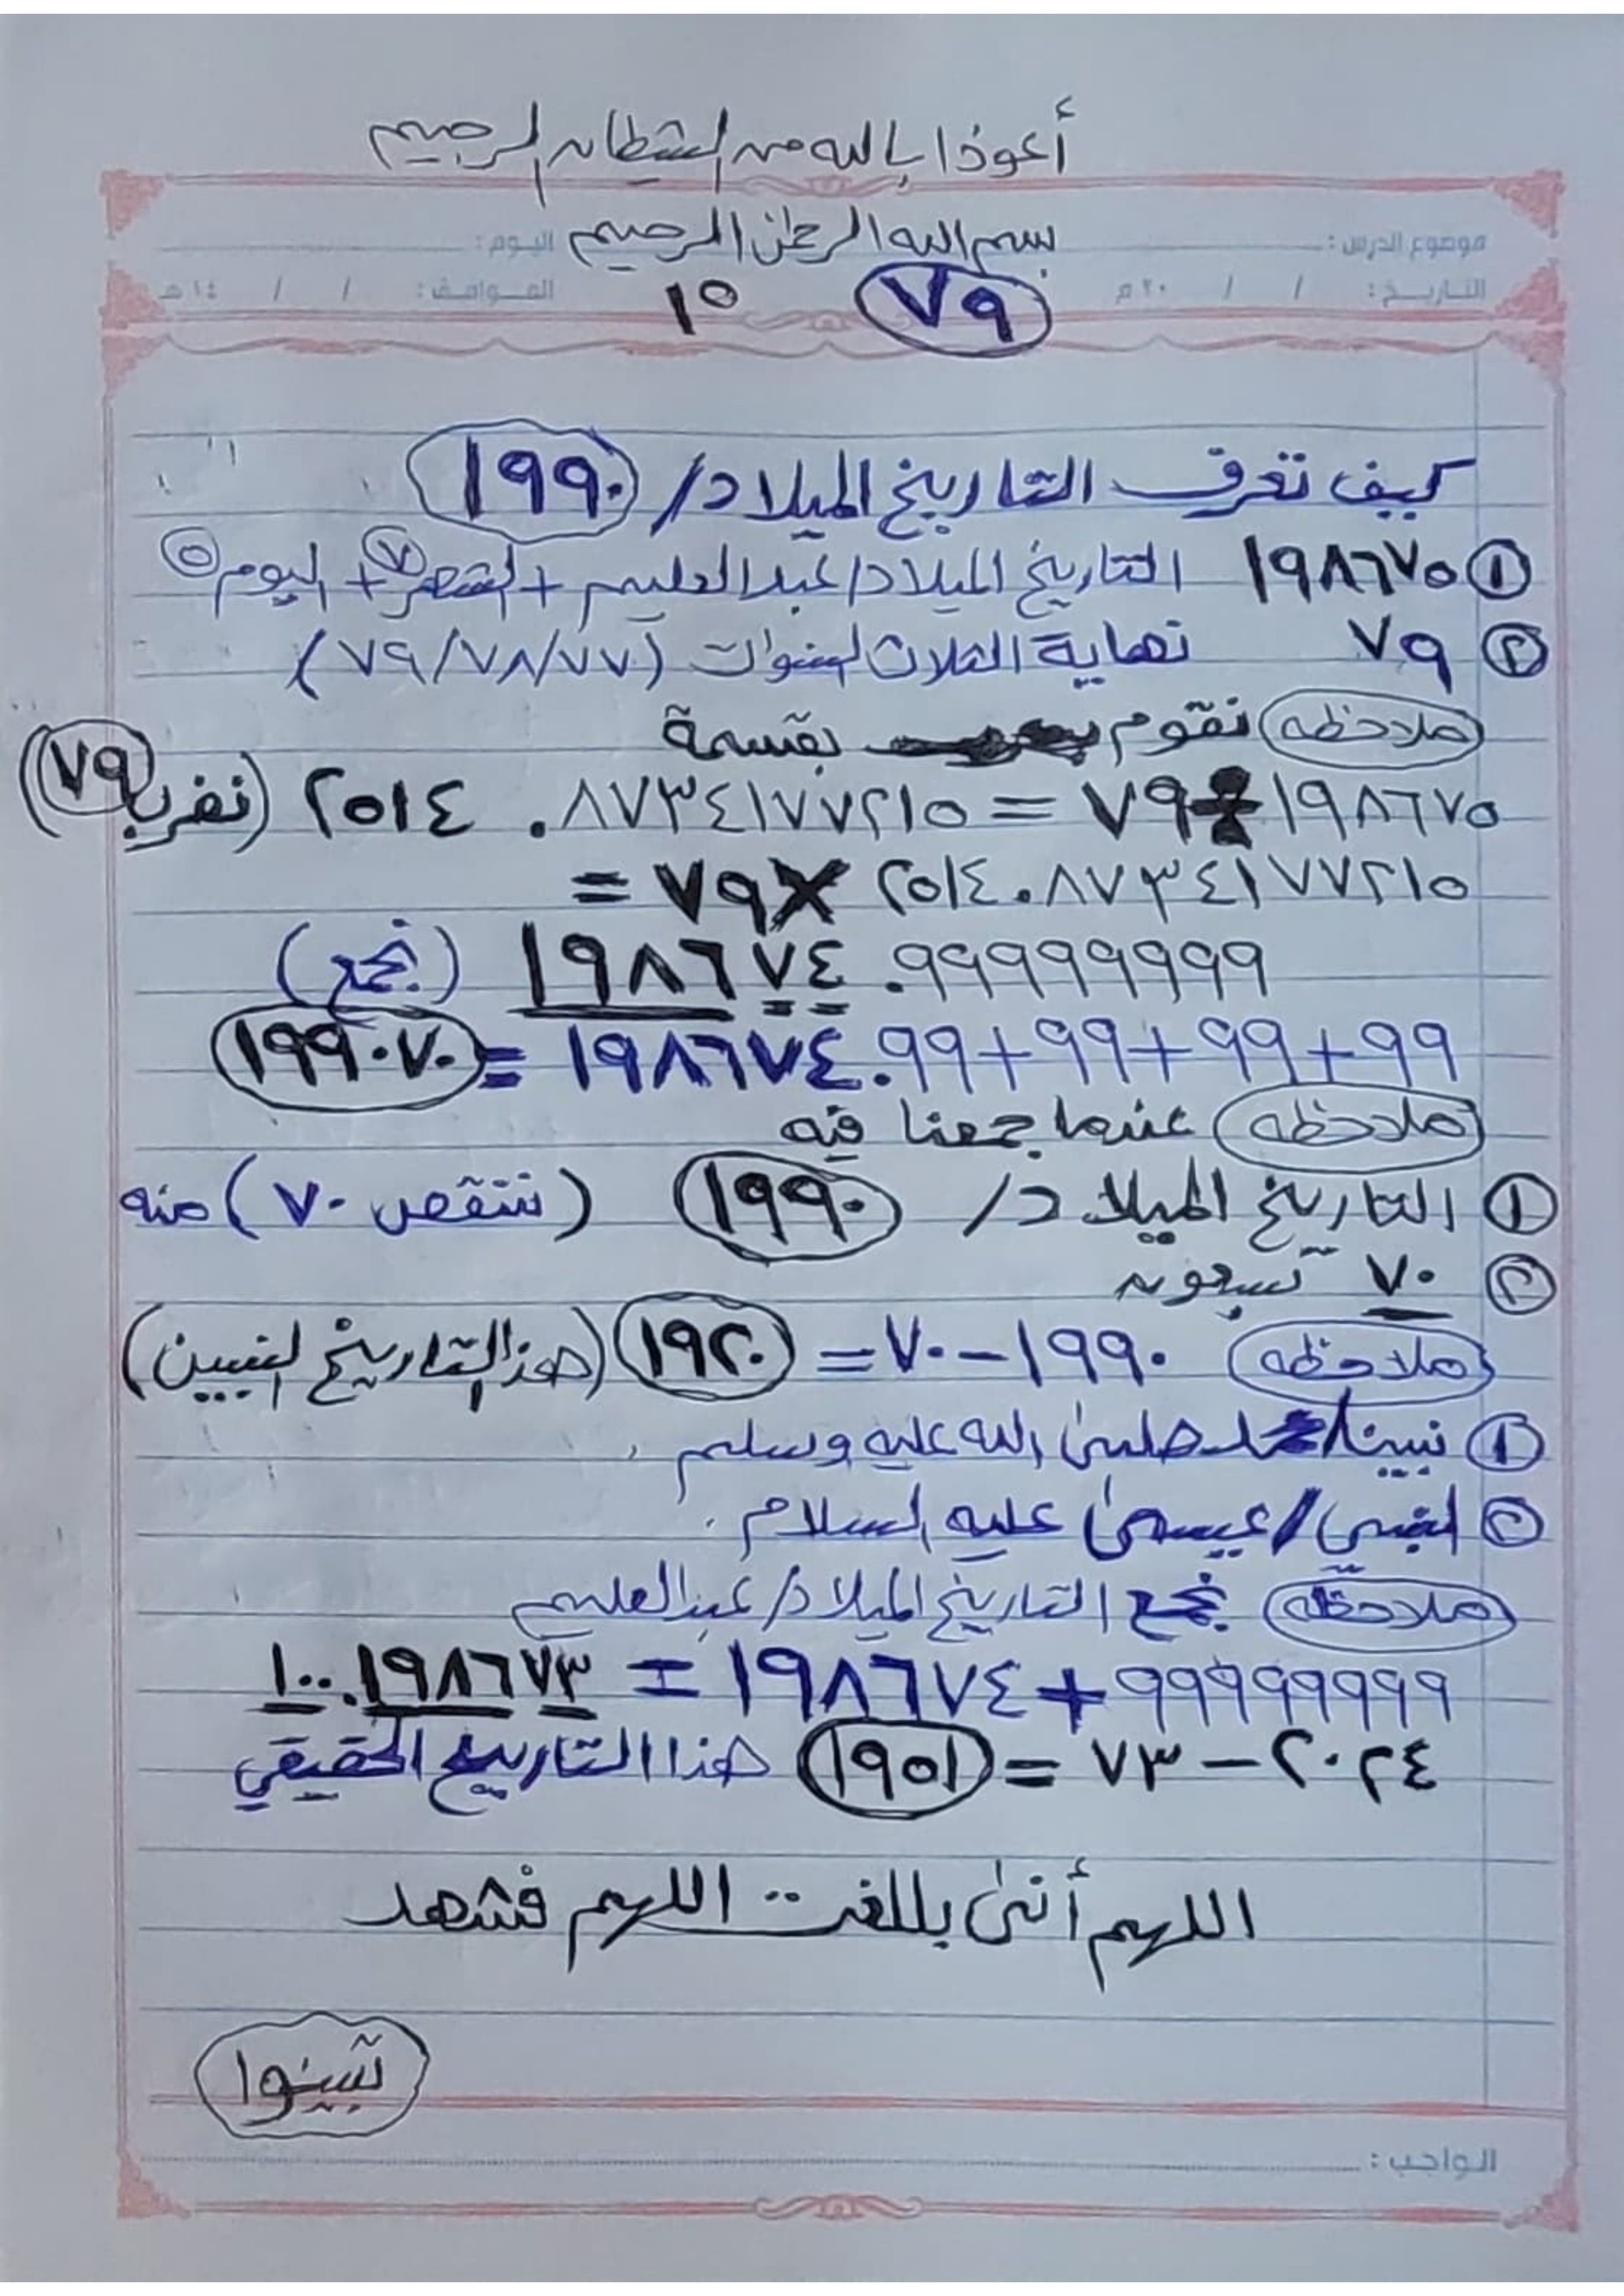 أعوذا بالله من الشيطان الرجيم
بسم الله الرحمن الرحيم
موضوع الدرس : اليوم :
٧٩ ١٥
التاريخ : / / ٢٠م الموافق : / / ١٤هـ
كيف تعرف التاريخ الميلاد/ ١٩٩٠
① ١٩٨٦٧٥ التاريخ الميلاد/ عبدالعليم + الشهر ٧ + اليوم ٥
② ٧٩ نهاية الثلاث السنوات (٧٧/٧٨/٧٩)
ملاحظه نقوم بقسمة
١٩٨٦٧٥ ÷ ٧٩ = ٢٥١٤.٨٧٣٤١٧٧٢١٥ (نضرب ٧٩)
٢٥١٤.٨٧٣٤١٧٧٢١٥ × ٧٩ =
١٩٨٦٧٤.٩٩٩٩٩٩٩٩ (نجمع)
١٩٨٦٧٤.٩٩+٩٩+٩٩+٩٩ = ١٩٩٠٧٠
ملاحظه عندما جمعنا فيه
① التاريخ الميلاد/ ١٩٩٠ (ننقص ٧٠) منه
② ٧٠ سبعون
ملاحظه ١٩٩٠ – ٧٠ = ١٩٢٠ (هذا التاريخ لنبيين)
① نبينا/محمد صلى الله عليه وسلم .
② النبي/عيسى عليه السلام .
ملاحظه نجمع التاريخ الميلاد/ عبدالعليم
٩٩٩٩٩٩٩٩ + ١٩٨٦٧٤ = ١٠٠.١٩٨٦٧٣
٢٠٢٤ – ٧٣ = ١٩٥١ هذا التاريخ الحقيقي
اللهم أنى بللغت اللهم فشهد
تبينوا
الواجب :